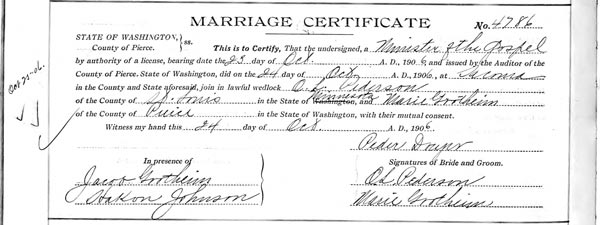 MARRIAGE CERTIFICATE
No. 4786
STATE OF WASHINGTON, } ss.
County of Pierce.
This is to Certify, That the undersigned, a Minister of the Gospel
by authority of a license, bearing date the 23 day of Oct. A. D., 1906, and issued by the Auditor of the
County of Pierce. State of Washington, did on the 24 day of Oct. A. D., 1906, at Tacoma
in the County and State aforesaid, join in lawful wedlock O. L. Pederson
of the County of St. Louis in the State of Washington, Minnesota and Marie Grotheim
of the County of Pierce in the State of Washington, with their mutual consent.
Witness my hand this 24 day of Oct. A. D., 1906
Peder
In presence of
Signatures of Bride and Groom.
Jacob Grotheim
O L Pederson
Hakon Johnson
Marie Grotheim
Oct 25-06.